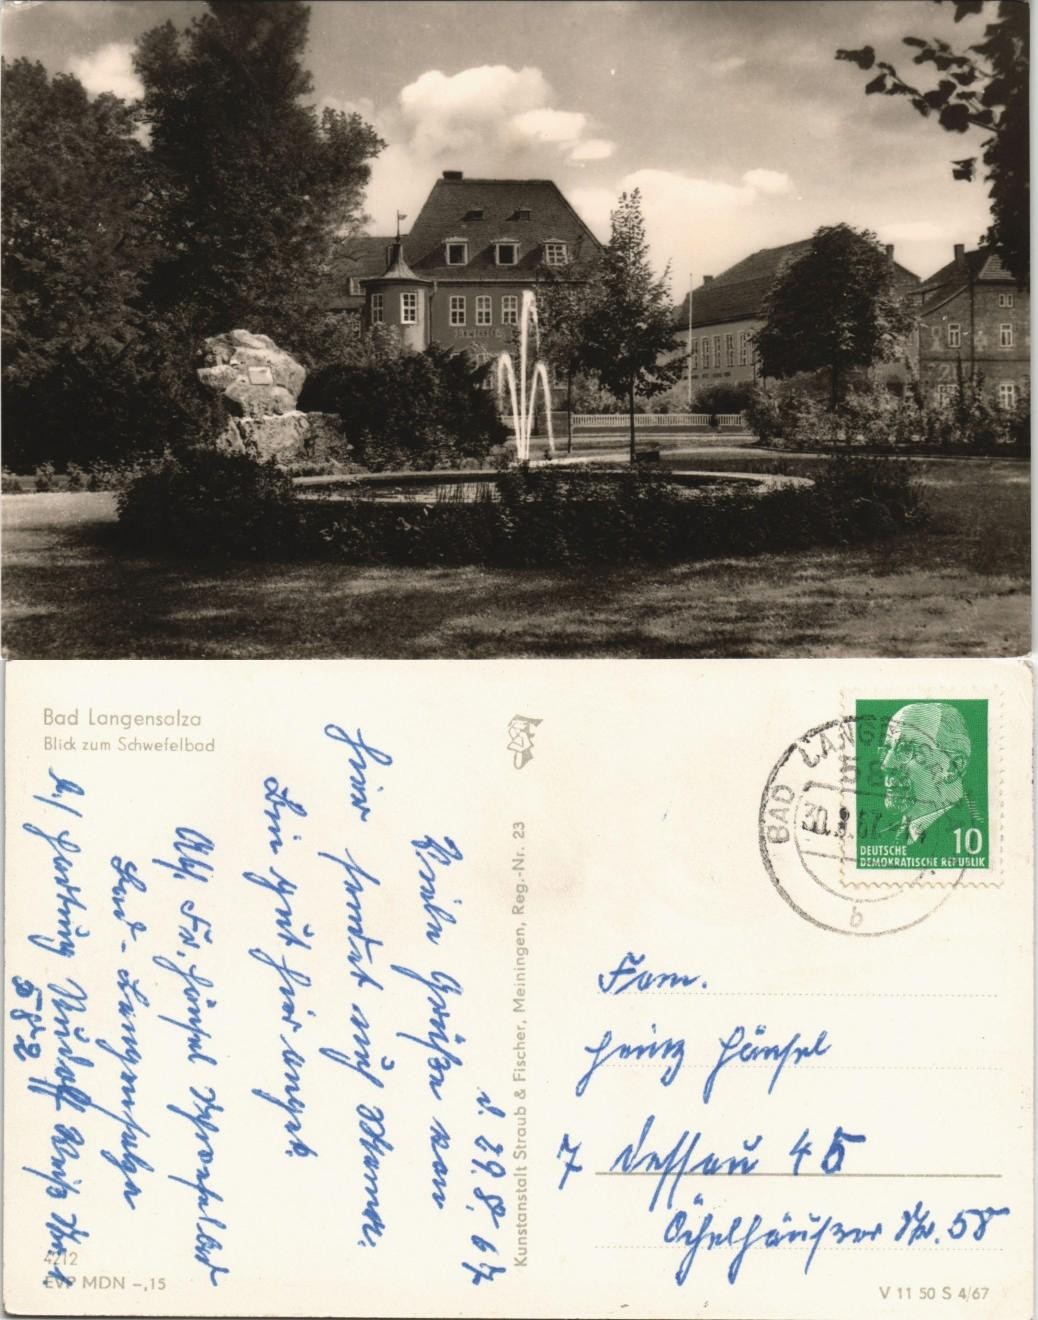 Bad Langensalza
Blick zum Schwefelbad
BAD LANGENSALZA
30.8.67
b
10
DEUTSCHE
DEMOKRATISCHE REPUBLIK
d. 29.8.67
Viele Grüße von
hier sendet euch
Bin gut hier angek.
Abs. Fr. Hänsel Schwefelbad
Bad-Langensalza
582
Kunstanstalt Straub & Fischer, Meiningen, Reg.-Nr. 23
Fam.
Heinz Hänsel
7 Dessau 45
Str. 58
4212
EVP MDN -,15
V 11 50 S 4/67